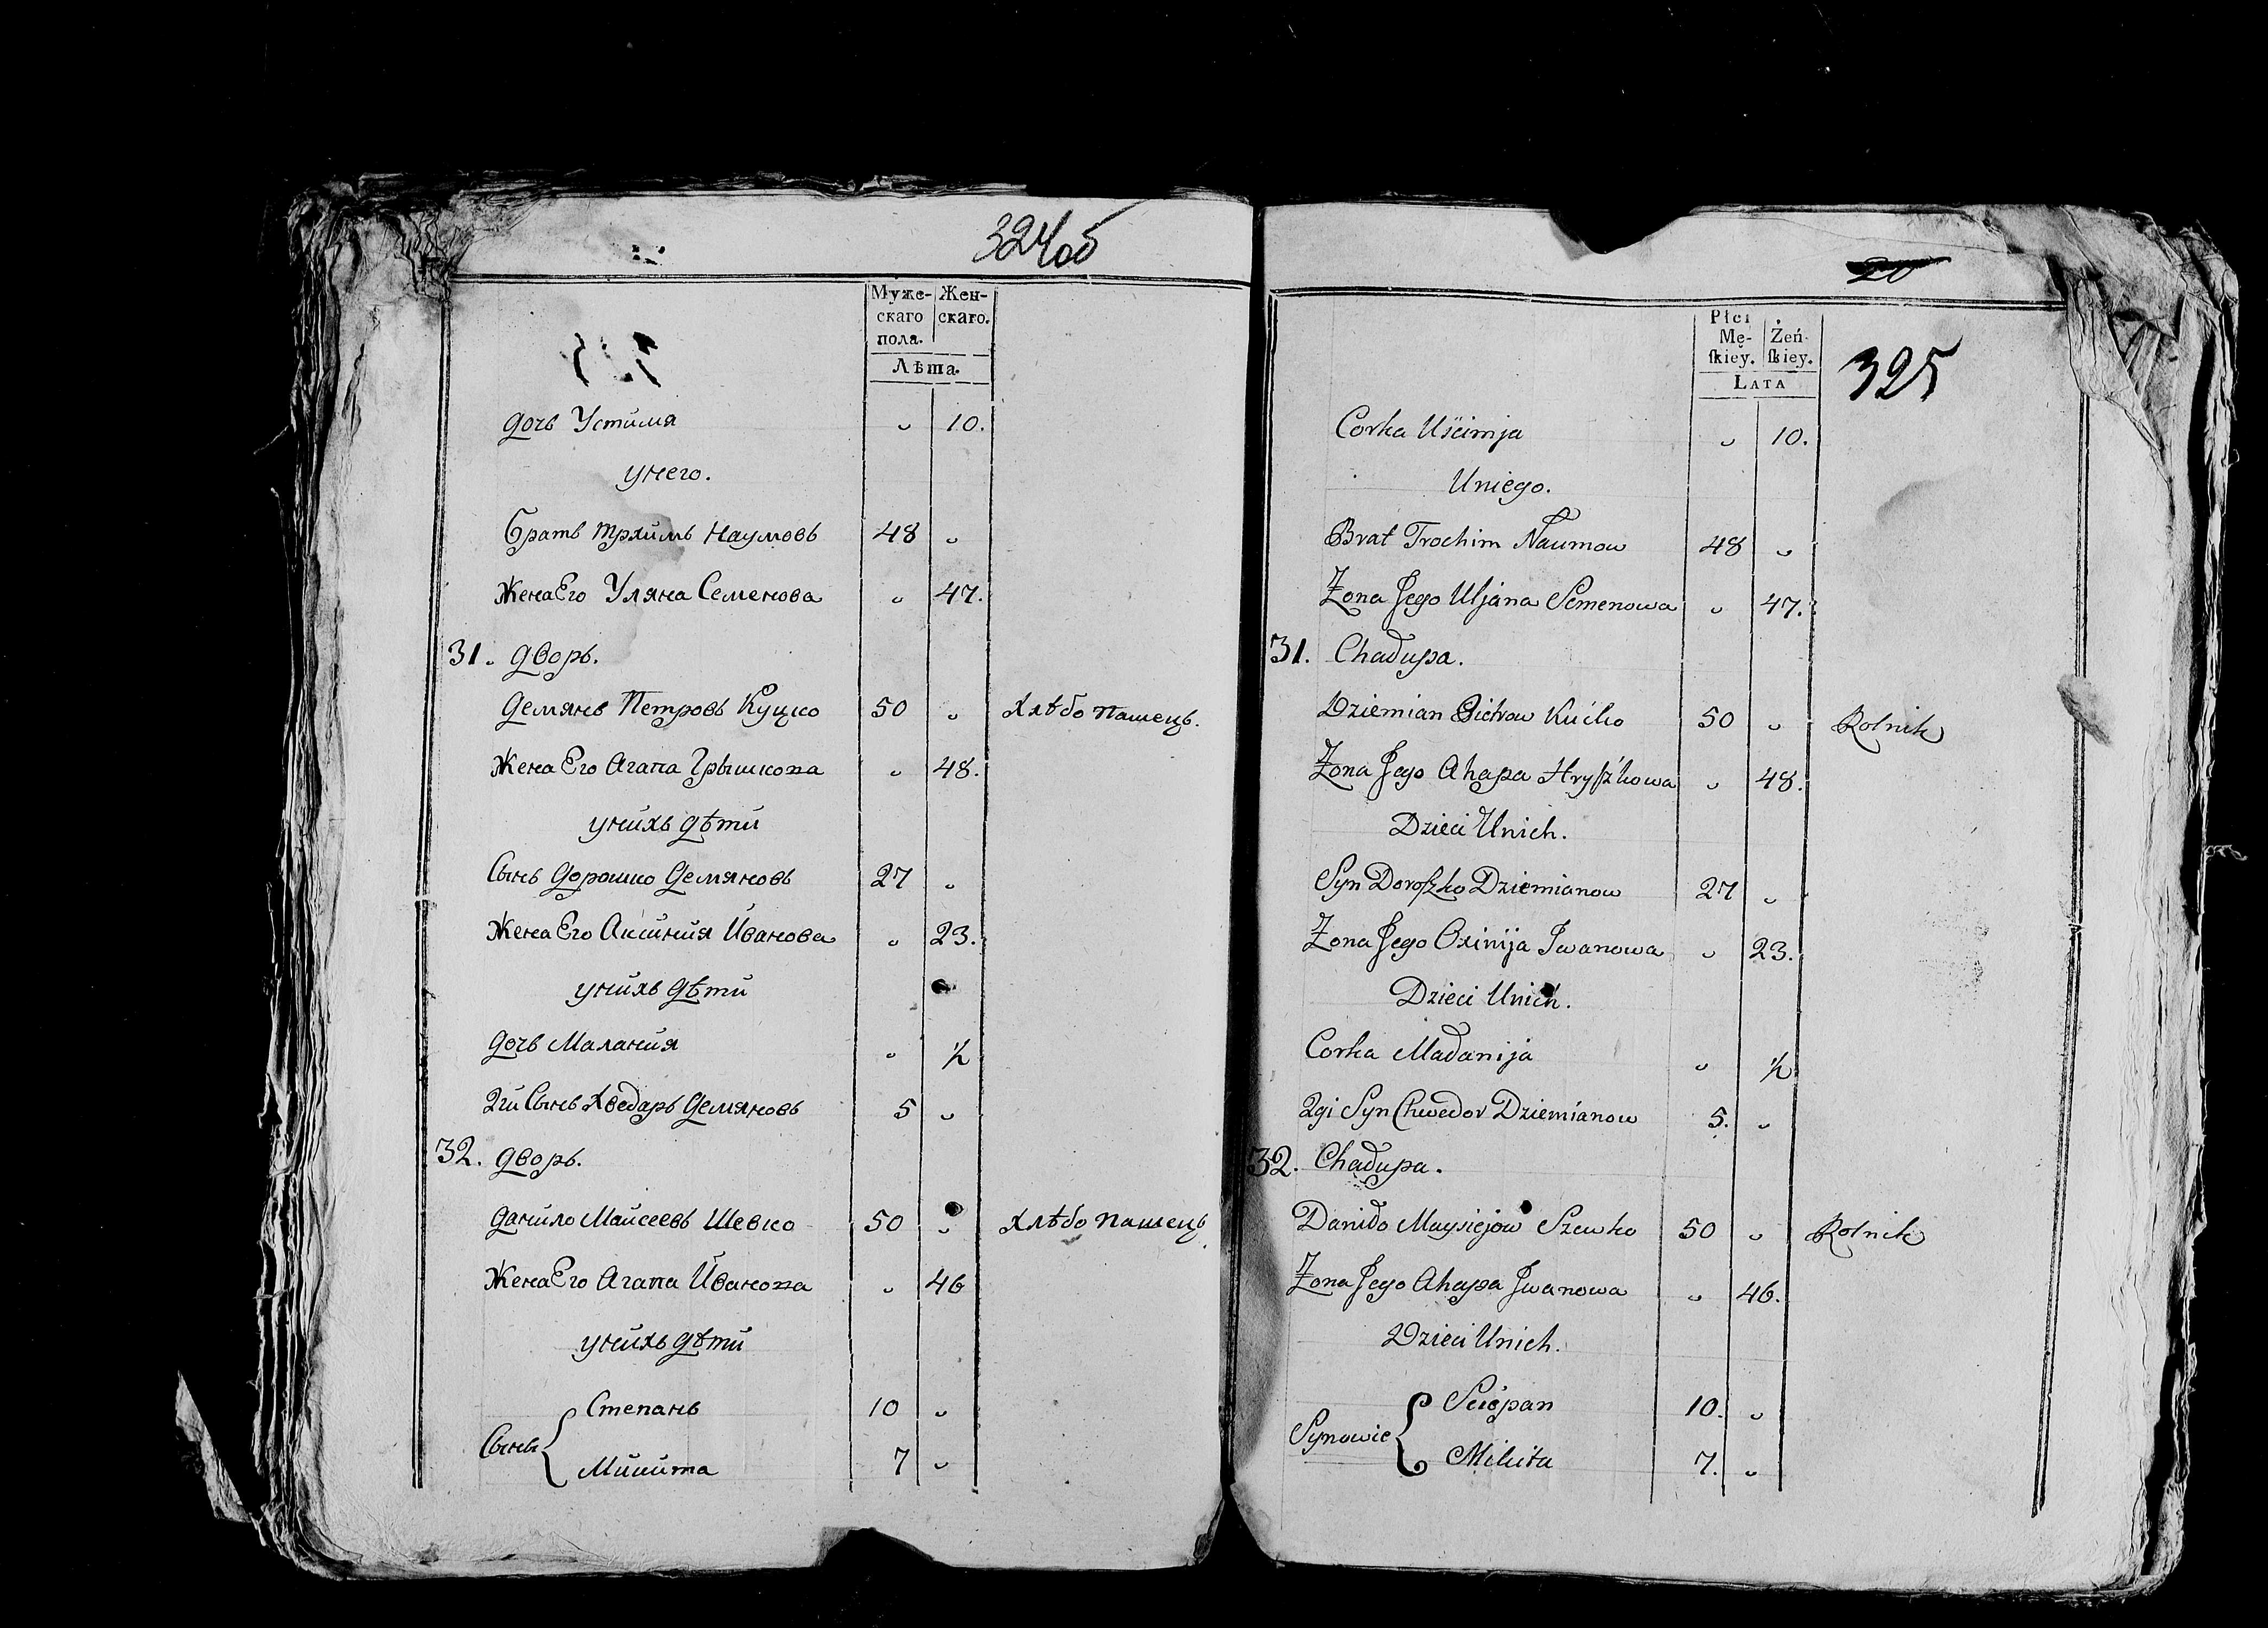 324об
Муже- Жен-
скаго скаго.
пола.
Лѣта.
дочь Устимя " 10.
унего.
братъ трхимъ Наумовъ 48 "
Жена Его Уляна Семенова " 47.
31. дворъ.
Демянъ Петровъ Куцко 50 " хлѣбо пашецъ.
Жена Его Агапа Грышкова " 48.
унихъ дѣти
Сынъ Дорошко Демяновъ 27 "
Жена Его Аксиния Иванова " 23.
унихъ дѣти
дочь Малания " ½
2й Сынъ Хведаръ Демяновъ 5 "
32. дворъ.
Данило Майсеевъ Шевко 50 " хлѣбо пашецъ
Жена Его Агапа Иванова " 46
унихъ дѣти
Степанъ 10 "
Сынъ
Микита 7 "
20
325
Płci
Mę- Żeń-
skiey. skiey.
LATA
Corka Uścimja " 10.
Uniego.
Brat Trochim Naumow 48 "
Zona Jego Uljana Semenowa " 47.
31. Chałupa.
Dziemian Pietrow Kućko 50 " Rolnik
Zona Jego Ahapa Hryszkowa " 48.
Dzieci Unich.
Syn Doroszko Dziemianow 27 "
Zona Jego Oxinija Jwanowa " 23.
Dzieci Unich.
Corka Małanija " ½
2gi Syn Chwedor Dziemianow 5. "
32. Chałupa.
Daniło Maysiejow Szewko 50 " Rolnik
Zona Jego Ahapa Jwanowa " 46.
Dzieci Unich.
Sciepan 10. "
Synowie
Mikita 7. "